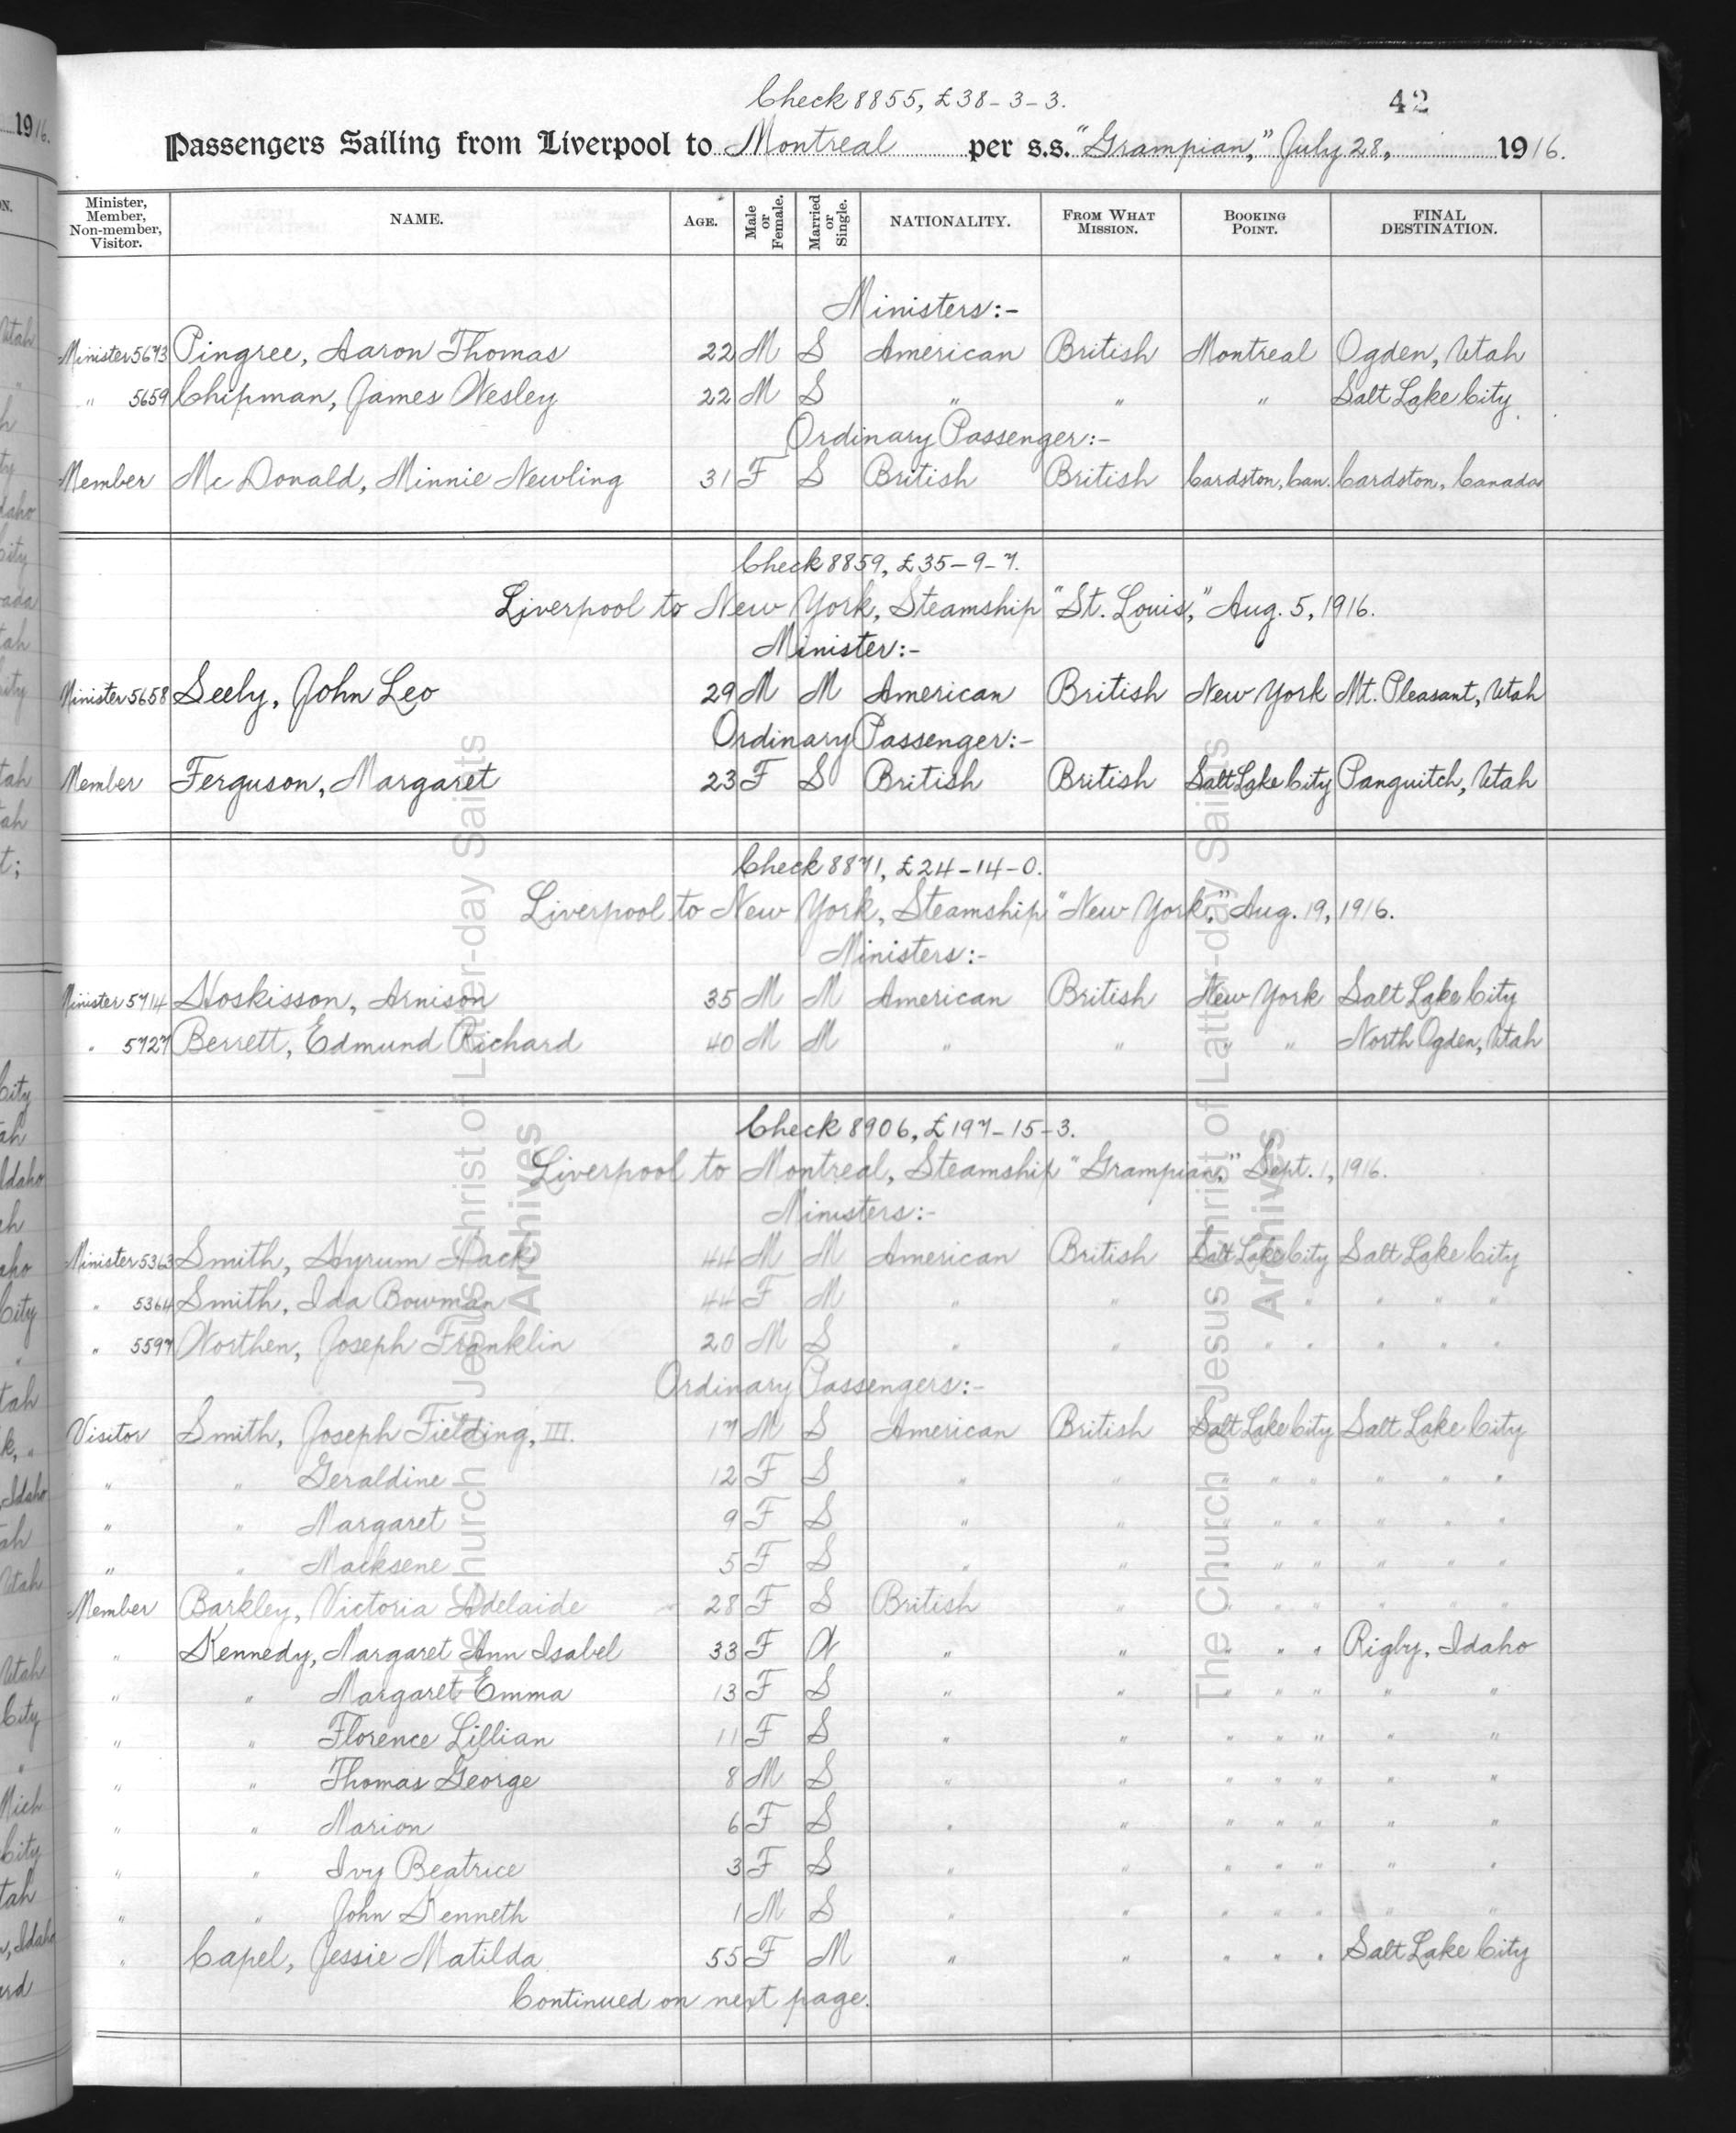 Check 8855, £38-3-3.
42
Passengers Sailing from Liverpool to Montreal per s.s. "Grampian," July 28, 1916.
Minister, Member, Non-member, Visitor. NAME. AGE. Male or Female. Married or Single. NATIONALITY. FROM WHAT MISSION. BOOKING POINT. FINAL DESTINATION.
Ministers:-
Minister 5673 Pingree, Aaron Thomas 22 M S American British Montreal Ogden, Utah
" 5659 Chipman, James Wesley 22 M S " " " Salt Lake City
Ordinary Passenger:-
Member McDonald, Minnie Newling 31 F S British British Cardston, Can. Cardston, Canada
Check 8859, £35-9-7.
Liverpool to New York, Steamship "St. Louis," Aug. 5, 1916.
Minister:-
Minister 5658 Seely, John Leo 29 M M American British New York Mt. Pleasant, Utah
Ordinary Passenger:-
Member Ferguson, Margaret 23 F S British British Salt Lake City Panguitch, Utah
Check 8871, £24-14-0.
Liverpool to New York, Steamship "New York," Aug. 19, 1916.
Ministers:-
Minister 5714 Hoskisson, Arnison 35 M M American British New York Salt Lake City
" 5727 Berrett, Edmund Richard 40 M M " " " " North Ogden, Utah
Check 8906, £197-15-3.
Liverpool to Montreal, Steamship "Grampian," Sept. 1, 1916.
Ministers:-
Minister 5363 Smith, Hyrum Mack 44 M M American British Salt Lake City Salt Lake City
" 5364 Smith, Ida Bowman 44 F M " " " " " " "
" 5597 Worthen, Joseph Franklin 20 M S " " " " " " "
Ordinary Passengers:-
Visitor Smith, Joseph Fielding, III. 17 M S American British Salt Lake City Salt Lake City
" " Geraldine 12 F S " " " " " " " "
" " Margaret 9 F S " " " " " " " "
" " Macksene 5 F S " " " " " " " "
Member Barkley, Victoria Adelaide 28 F S British " " " " " " "
" Kennedy, Margaret Ann Isabel 33 F W " " " " " Rigby, Idaho
" " Margaret Emma 13 F S " " " " " " "
" " Florence Lillian 11 F S " " " " " " "
" " Thomas George 8 M S " " " " " " "
" " Marion 6 F S " " " " " " "
" " Ivy Beatrice 3 F S " " " " " " "
" " John Kenneth 1 M S " " " " " " "
" Capel, Jessie Matilda 55 F M " " " " " Salt Lake City
Continued on next page.
The Church of Jesus Christ of Latter-day Saints
Archives
The Church of Jesus Christ of Latter-day Saints
Archives